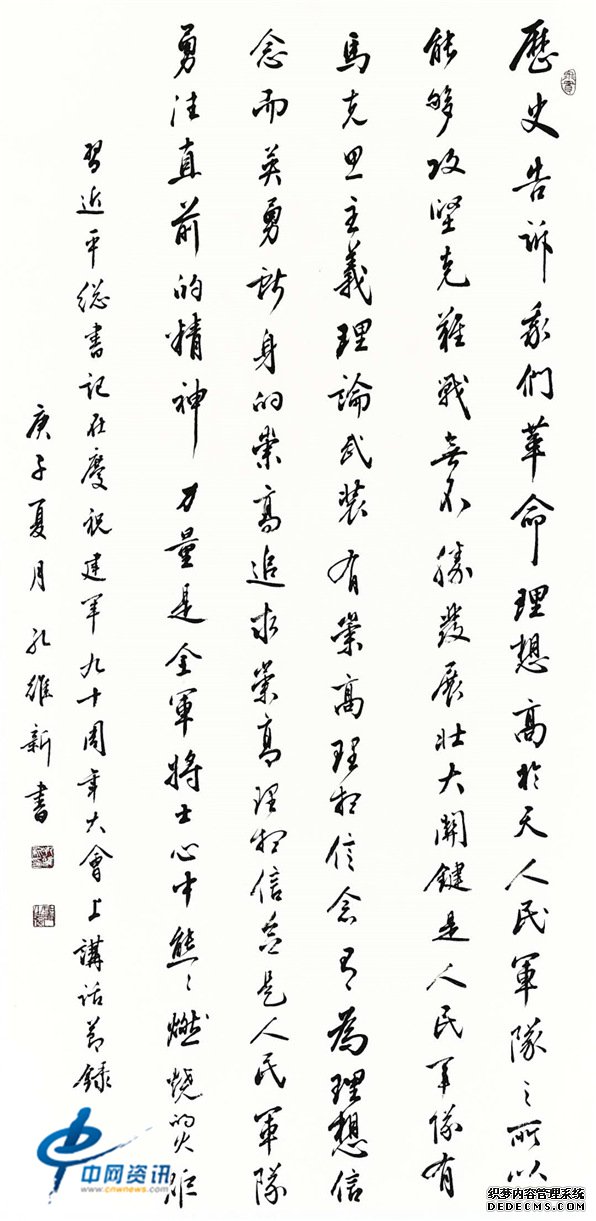 歷史告訴我們革命理想高於天人民軍隊之所以
能够攻堅克難戰無不勝發展壯大關鍵是人民军隊有
馬克思主義理論武装有崇高理想信念有為理想信
念而英勇献身的崇高追求崇高理想信念是人民軍隊
勇往直前的精神力量是全軍將士心中熊々燃燒的火炬
習近平總書記在慶祝建军九十周年大會上講话节錄
庚子夏月孔維新書
中网资讯
www.cnwnews.com
织梦内容管理系统
DEDECMS.COM